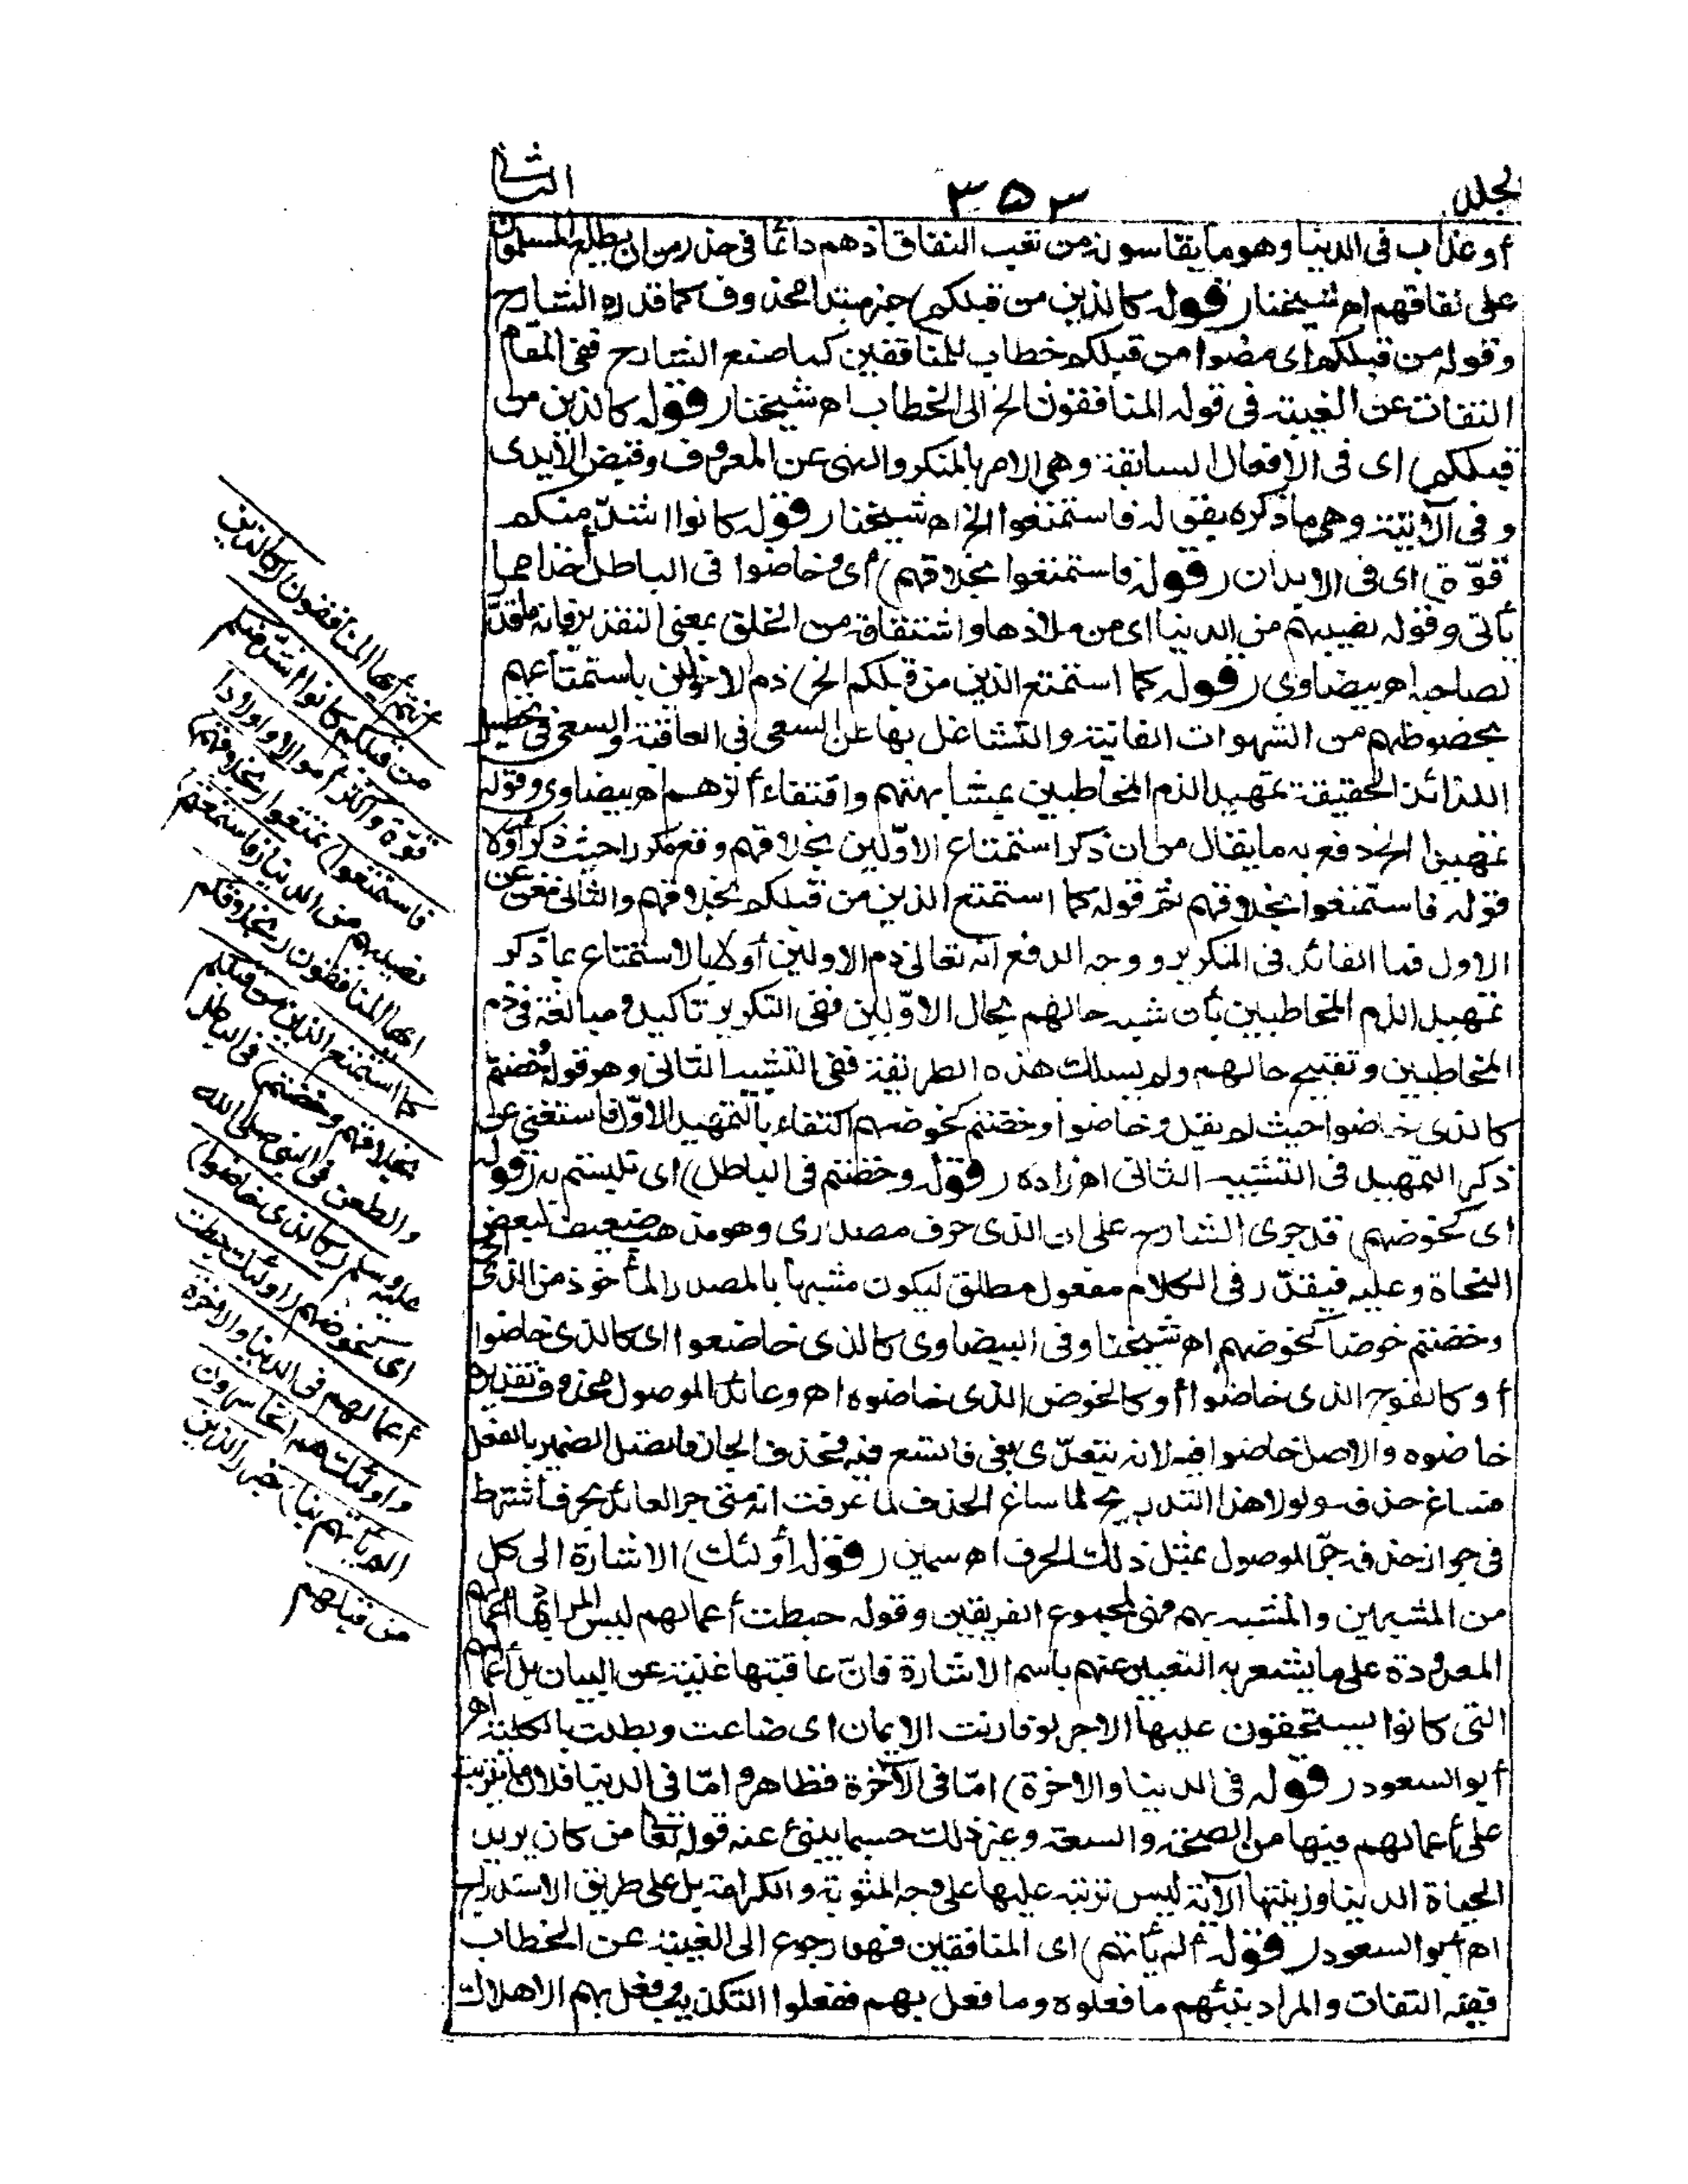 الجلد
٣٥٣
الثاني
أو عذاب في الدنيا وهو ما يقاسونه من تعب النفاق اذ هم دائما في حذر من ان يطلع المسلمون
على نفاقهم اه شيخنا (قوله كالذين من قبلكم) خبر مبتدا محذوف كما قدره الشارح
وقوله من قبلكم اى مضوا من قبلكم خطاب للمنافقين كما صنع الشارح ففي المقام
التفات عن الغيبة في قوله المنافقون الخ الى الخطاب اه شيخنا (قوله كالذين من
قبلكم) اى في الافعال السابقة وهى الامر بالمنكر والنهى عن المعروف وقبض الأيدى
وفى الآتية وهى ما ذكره بقوله فاستمتعوا الخ اه شيخنا (قوله كانوا اشدّ منكم
قوّة) اى فى الابدان (قوله فاستمتعوا بخلاقهم) أى وخاضوا فى الباطل أخذا مما
يأتى وقوله نصيبهم من الدنيا اى من ملاذها واشتقاقه من الخلق بمعنى التقدير فانه ما قدّر
لصاحبه اه بيضاوى (قوله كما استمتع الذين من قبلكم الخ) ذم الاولين باستمتاعهم
بحضوظهم من الشهوات الفانية والتشاغل بها عن السعى فى العاقبة والسعى فى تحصيل
اللذائذ الحقيقة تمهيد الذم المخاطبين بمشابهتهم واقتفاء أثرهم اه بيضاوى وقوله
تمهيدا الخ دفع به ما يقال من ان ذكر استمتاع الاوّلين بخلاقهم وقع مكررا حيث ذكر أولا
قوله فاستمتعوا بخلاقهم ثم قوله كما استمتع الذين من قبلكم بخلاقهم والثانى مغن عن
الاول فما الفائدة فى التكرير ووجه الدفع انه تعالى ذم الاولين أولا بالاستمتاع بما ذكر
تمهيدا لذم المخاطبين بأن شبه حالهم بحال الاوّلين ففى التكرير تأكيد ومبالغة فى ذم
المخاطبين وتقبيح حالهم ولم يسلك هذه الطريقة ففى التشبيه الثانى وهو قوله وخضتم
كالذى خاضوا حيث لم يقل وخاضوا وخضتم كخوضهم اكتفاء بالتمهيد الاوّل فاستغنى عن
ذكر التمهيد فى التشبيه الثانى اه زاده (قوله وخضتم فى الباطل) اى تلبستم به (قوله
اى كخوضهم) قد جرى الشارح على ان الذى حرف مصدرى وهو مذهب ضعيف لبعض
النحاة وعليه فيقدّر فى الكلام مفعول مطلق ليكون مشبها بالمصدر المأخوذ من الذى اى
وخضتم خوضا كخوضهم اه شيخنا وفى البيضاوى كالذى خاضعوا اى كالذى خاضوا
أو كالفوج الذى خاضوا أو كالخوض الذى خاضوه اه وعائد الموصول محذوف تقديره
خاضوه والاصل خاضوا فيه لانه يتعدّى بفى فاتسع فيه فحذف الجار فاتصل الضمير بالفعل
فساغ حذفه ولولا هذا التدريج لما ساغ الحذف لما عرفت انه متى جر العائد بحرف اشترط
فى جواز حذفه جرّ الموصول بمثل ذلك الحرف اه سمين (قوله أولئك) الاشارة الى كل
من المشبهين والمشبه بهم فهى لمجموع الفريقين وقوله حبطت أعمالهم ليس المراد بها أعمالهم
المعدودة على ما يشعر به التعبير عنهم باسم الاشارة فانّ عاقبتها غنية عن البيان بل أعمالهم
التى كانوا يستحقون عليها الاجر لو قارنت الايمان اى ضاعت وبطلت بالكلية اه
أبو السعود (قوله فى الدنيا والاخرة) امّا فى الآخرة فظاهر وامّا فى الدنيا فلان ما يترتب
على أعمالهم فيها من الصحة والسعة وغير ذلك حسبما ينبئ عنه قوله تعالى من كان يريد
الحياة الدنيا وزينتها الآية ليس ترتبه عليها على وجه المثوبة والكرامة بل على طريق الاستدراج
اه أبو السعود (قوله ألم يأتهم) اى المنافقين فهو رجوع الى الغيبة عن الخطاب
ففيه التفات والمراد بنبئهم ما فعلوه وما فعل بهم ففعلوا التكذيب وفعل بهم الاهلاك
أنتم أيها المنافقون (كالذين
من قبلكم كانوا اشدّ منكم
قوّة وأكثر أموالا واولادا
فاستمتعوا) تمتعوا (بخلاقهم)
نصيبهم من الدنيا (فاستمتعتم)
ايها المنافقون (بخلاقكم
كما استمتع الذين من قبلكم
بخلاقهم وخضتم) فى الباطل
والطعن فى النبى صلى الله
عليه وسلم (كالذى خاضوا)
اى كخوضهم (اولئك حبطت
أعمالهم فى الدنيا والاخرة
واولئك هم الخاسرون
الم يأتهم نبا) خبر (الذين
من قبلهم